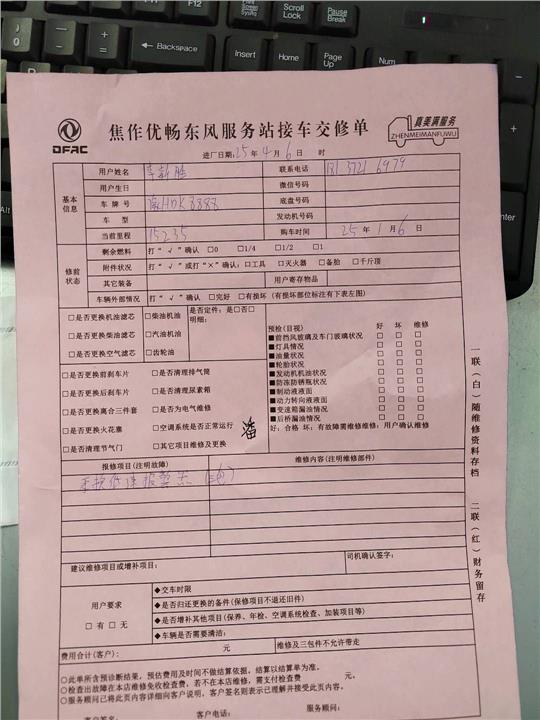 DFAC
焦作优畅东风服务站接车交修单
真美满服务
ZHENMEIMANFUWU
进厂日期:25年4月6日 时
基本信息
用户姓名
联系电话
用户生日 微信号码
车牌号 豫HDK8888 底盘号码
车型 发动机号码
当前里程 15235 购车时间 25年1月6日
修前状态
剩余燃料 打“√”确认 □0 □1/4 □1/2 □1
附件状况 打“√”或打“×”确认:□工具 □灭火器 □备胎 □千斤顶
其它装备 用户寄存物品
车辆外部情况 打“√”确认 □完好 □有损坏(有损部位标注有下表左图)
□是否更换机油滤芯 □柴油机油 是否定件:是□否□
明细:
□是否更换柴油滤芯 □汽油机油
□是否更换空气滤芯 □齿轮油
□是否更换前刹车片 □是否清理排气筒
□是否更换后刹车片 □是否清理尿素箱
□是否更换离合三件套 □是否为电气维修
□是否更换火花塞 □空调系统是否正常运行
□是否清理节气门 □其它项目维修及更换
潘
预检(目视) 好 坏 维修
■前挡风玻璃及车门玻璃状况 □ □ □
■灯具情况 □ □ □
■油量状况 □ □ □
■轮胎状况 □ □ □
■发动机机油状况 □ □ □
■防冻防锈瓶状况 □ □ □
■制动液液面 □ □ □
■动力转向液液面 □ □ □
■变速箱漏油情况 □ □ □
■后桥漏油情况 □ □ □
好:合格 坏:有故障需维修维修:用户确认维修
报修项目(注明故障) 维修内容(注明维修部件)
建议维修项目或增补项目: 司机确认签字:
用户要求
□有 □无
◆交车时限
◆是否归还更换的备件(保修项目不退还旧件)
◆是否增补其他项目(保养、年检、空调系统检查、加装项目等)
◆车辆是否需要清洁:
费用合计(客户): 元 维修及三包件不允许带走
○此单所含预诊断结果,预估费用及时间不做结算依据,结算以结算单为准。
○检查出故障在本店维修免收检查费,若不在本店维修,需支付检查费 元。
○服务顾问已将此页内容详细向客户说明,客户签名则表示已理解并接受此页内容。
客户签名: 客户电话: 服务顾问:
一联(白)随维修资料存档
二联(红)财务留存
PrtSc
SysRq
Scroll
Lock
Pause
Break
Backspace
Insert
Home
Page
Up
Alt
Ctrl